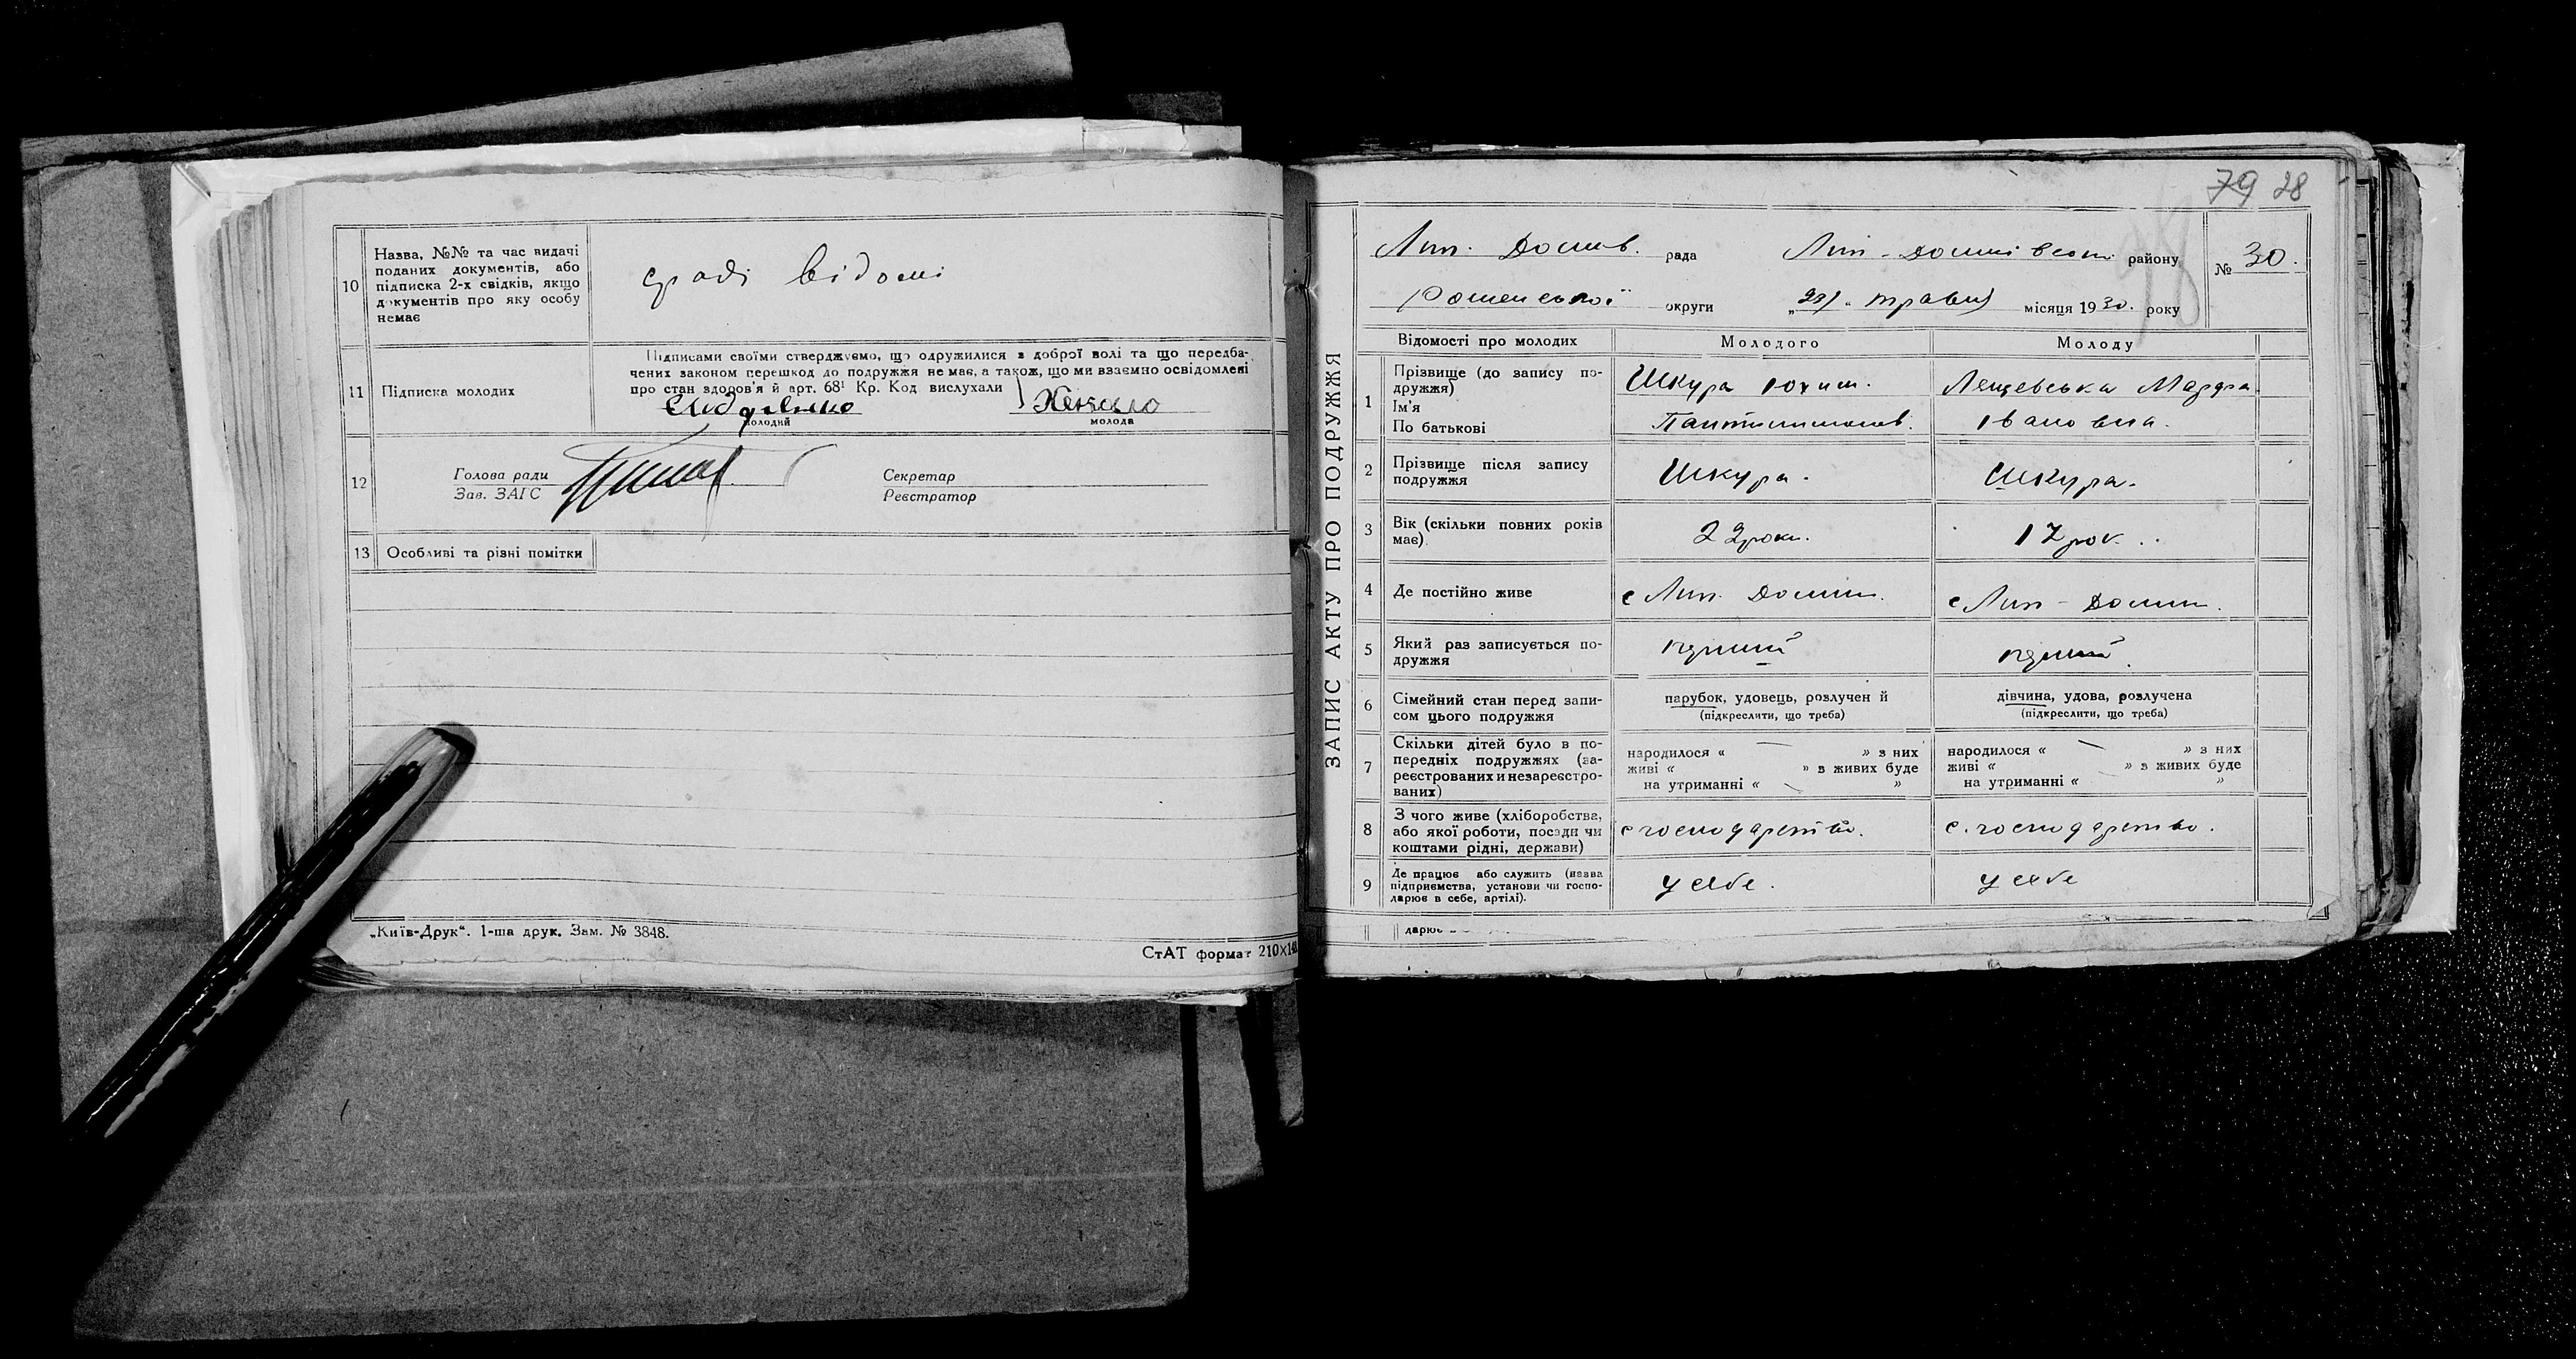 10
Назва, №№ та час видачі
поданих документів, або
підписка 2-х свідків, якщо
документів про яку особу
немає
раді відомі
11
Підписка молодих
Підписами своїми стверджуємо, що одружилися з доброї волі та що передба-
чених законом перешкод до подружжя немає, а також, що ми взаємно освідомлені
про стан здоров'я й арт. 68¹ Кр. Код вислухали
молодий
молода
12
Голова ради
Зав. ЗАГС
Секретар
Реєстратор
13
Особливі та різні помітки
„Київ-Друк“. 1-ша друк. Зам. № 3848.
СтАТ формат 210×148
79 28
ЗАПИС АКТУ ПРО ПОДРУЖЖЯ
Лип. Долин. рада Лип - Долинівськ. району
№ 30.
Роменської округи „23“ травня місяця 1930. року
Відомості про молодих
Молодого
Молоду
1
Прізвище (до запису по-
дружжя)
Ім'я
По батькові
Шкура Юхим.
Пантилимонов.
Лящевська Мазфа
Івановна.
2
Прізвище після запису
подружжя
Шкура.
Шкура.
3
Вік (скільки повних років
має).
22 роки.
17 рок.
4
Де постійно живе
с Лип. Долин.
с Лип - Долин.
5
Який раз записується по-
дружжя
перший
перший
6
Сімейний стан перед запи-
сом цього подружжя
парубок, удовець, розлучен й
(підкреслити, що треба)
дівчина, удова, розлучена
(підкреслити, що треба)
7
Скільки дітей було в по-
передніх подружжях (за-
реєстрованих и незареєстро-
ваних)
народилося « — » з них
живі « » в живих буде
на утриманні « — »
народилося « — » з них
живі « — » в живих буде
на утриманні « »
8
З чого живе (хліборобства,
або якої роботи, посади чи
коштами рідні, держави)
с господарство.
с. господарство.
9
Де працює або служить (назва
підприємства, установи чи госпо-
дарює в себе, артілі).
у себе.
у себе
дарює